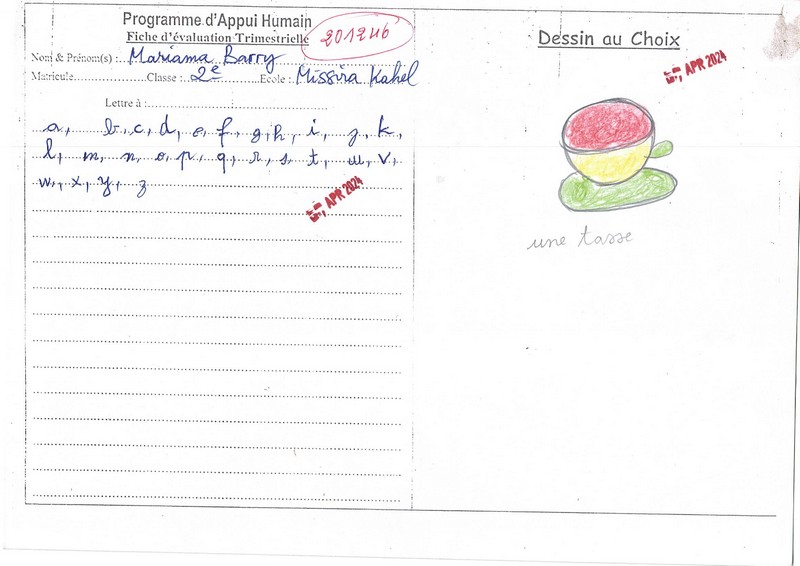 Programme d'Appui Humain
Fiche d'évaluation Trimestrielle
201246
Nom & Prénom(s) : Mariama Barry
Matricule Classe : 2e Ecole : Missira Kahel
Lettre à :
a, b, c, d, e, f, g, h, i, j, k,
l, m, n, o, p, q, r, s, t, u, v,
w, x, y, z
APR 2024
Dessin au Choix
APR 2024
une tasse